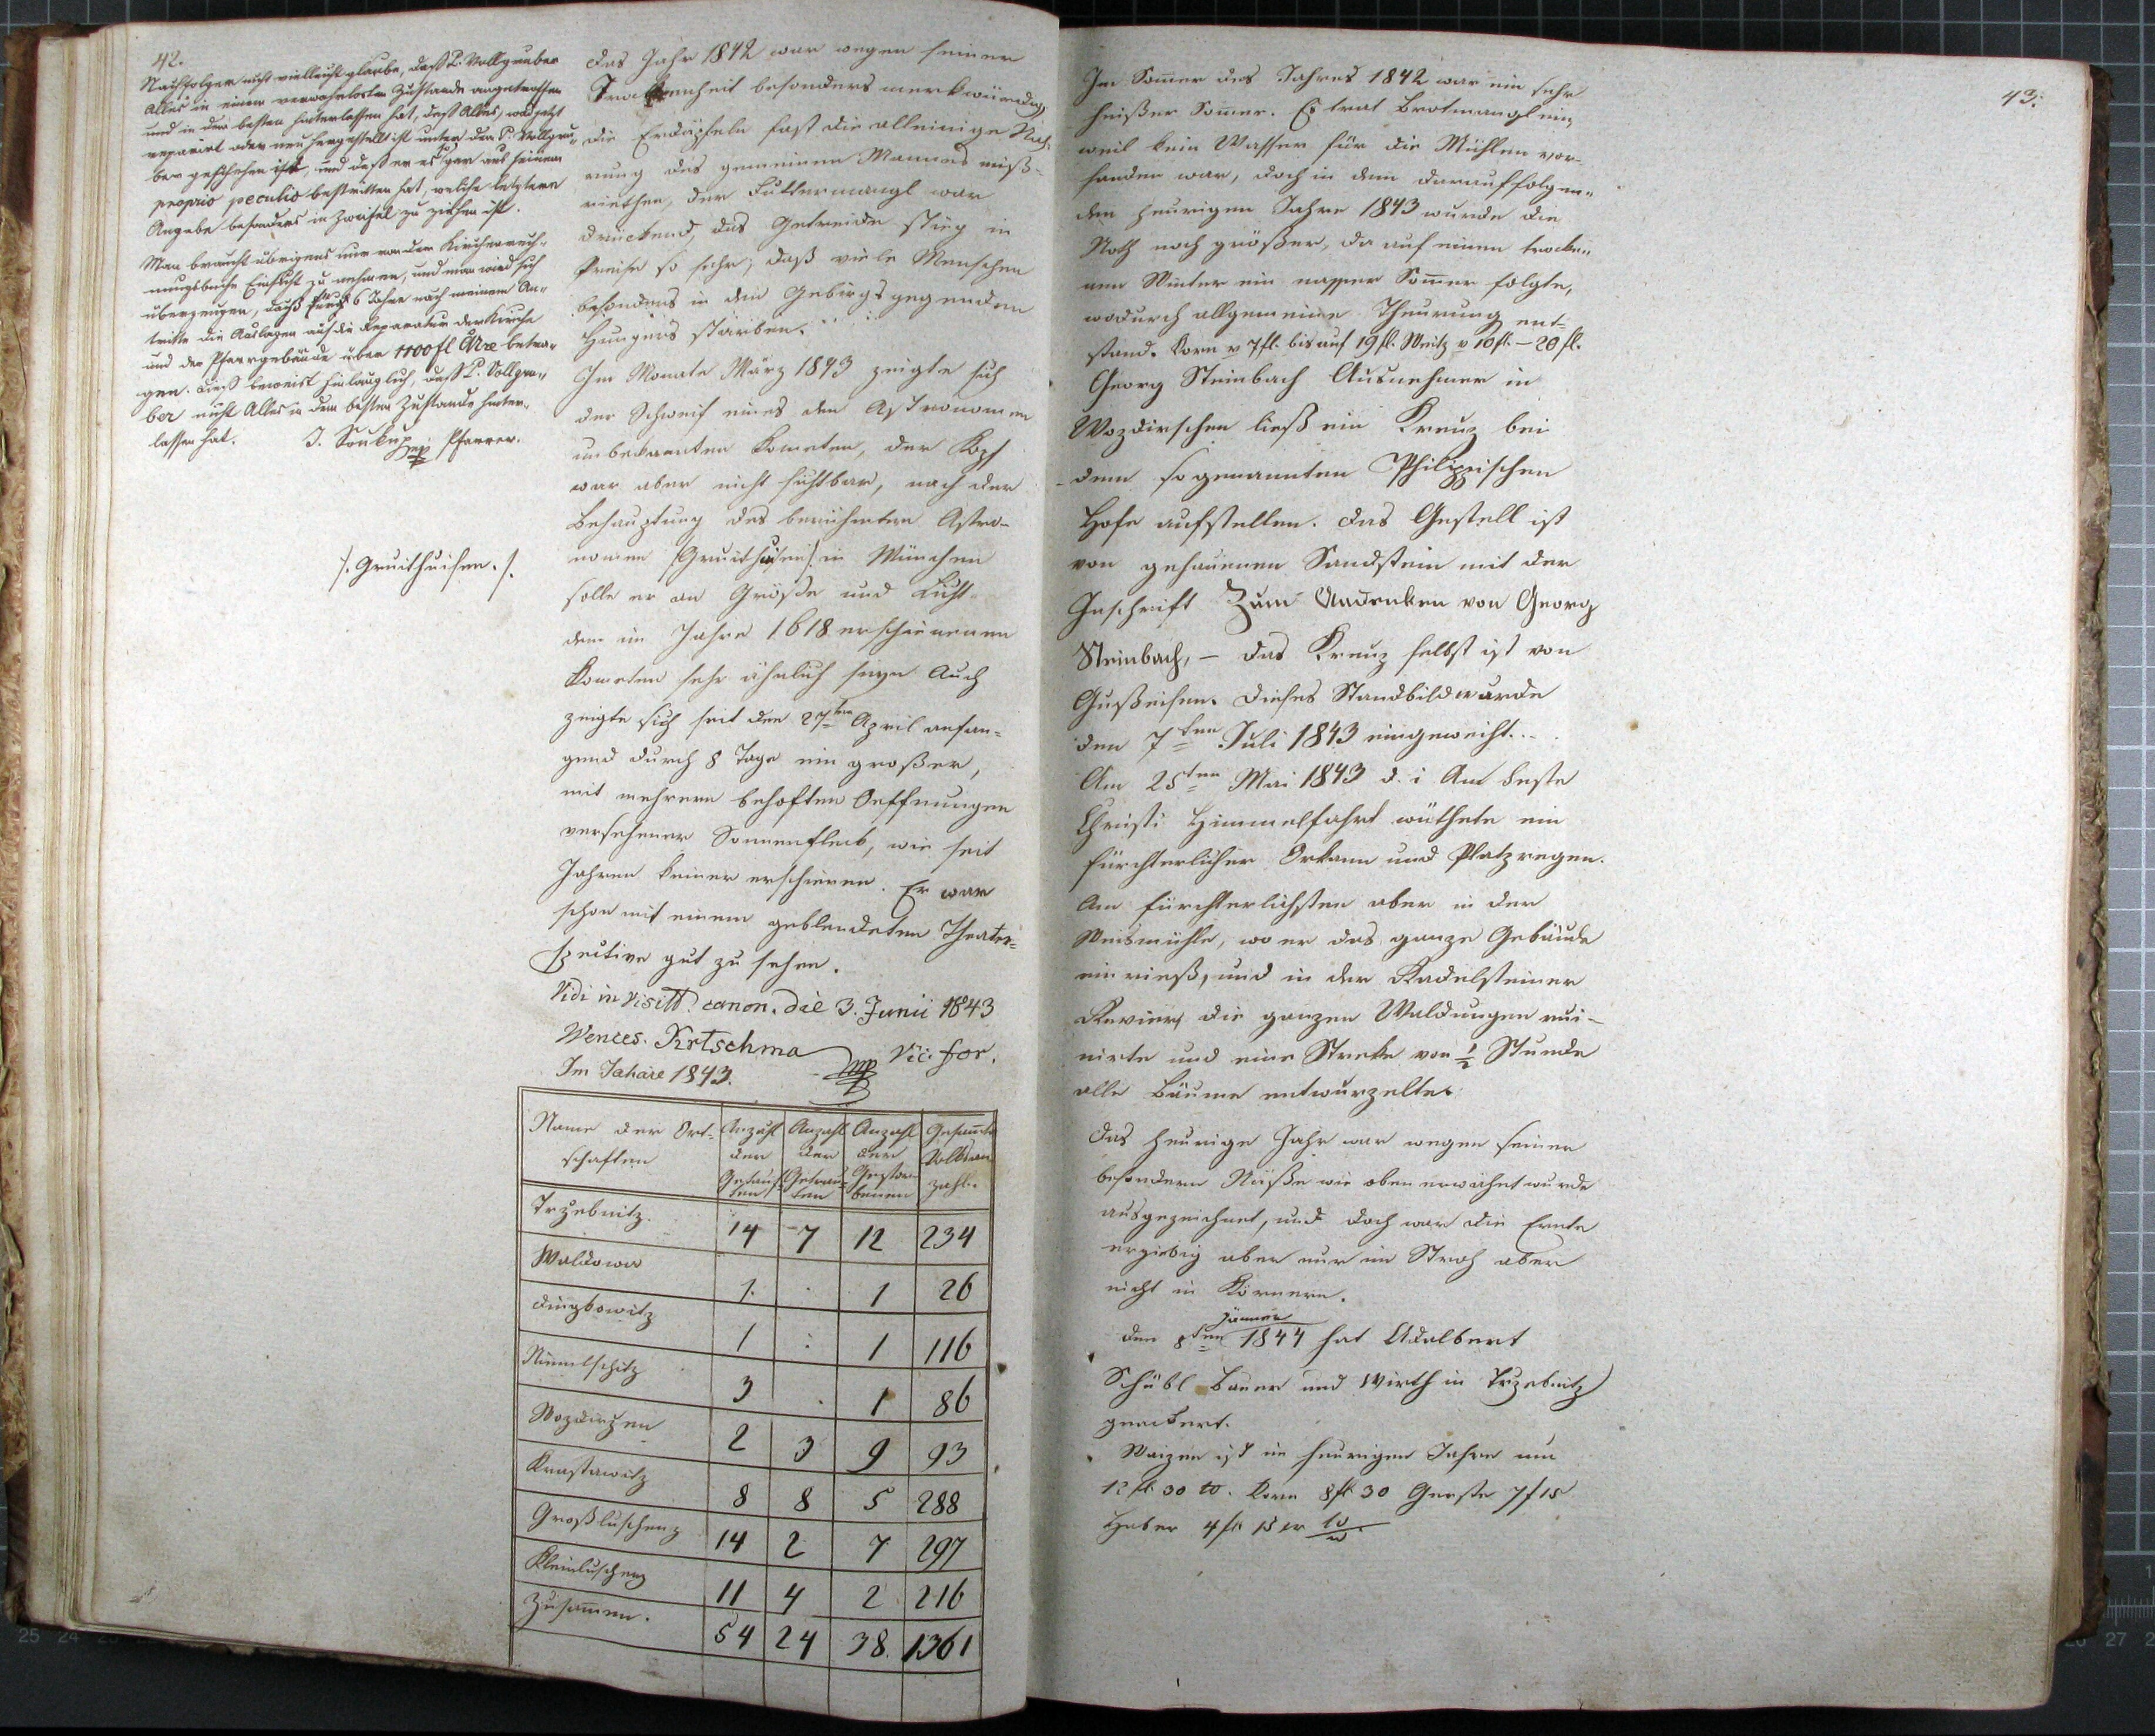 42.
Nachfolger nicht vielleicht glaube, daß P. Vollgruber
Alles in einem verwahrlosten Zustande angetroffen
und in dem besten hinterlassen hat, daß Alles, was jetzt
reparirt oder neu hergestellt ist unter dem P. Vollgru-
ber geschehen ist, und daß er es sogar aus seinem
proprio peculio bestritten hat, welche letztere
Angabe besonders in Zweifel zu ziehen ist.
Man braucht übrigens nur von dem Kirchenrech-
nungsbuche Einsicht zu nehmen, und man wird sich
überzeugen, daß durch 6 Jahre nach meinem An-
tritte die Auslagen auf die Reparatur der Kirche
und der Pfarrgebäude über 1100 fl betra-
gen. Dieß beweist hinlänglich, daß P. Vollgru-
ber nicht Alles in dem besten Zustande hinter-
lassen hat. J. Soukup mp Pfarrer.
/. Gruithuisen. /.
Das Jahr 1842 war wegen seiner
Trockenheit besonders merkwürdig,
die Erdäpfeln fast die alleinige Nah-
rung des gemeinen Mannes miß-
riethen, der Futtermangl war
drückend, das Getreide stieg im
Preise so sehr, daß viele Menschen
besonders in den Gebirgsgegenden
Hungers starben.
Im Monate März 1843 zeigte sich
der Schweif eines den Astronomen
unbekannten Kometen, der Kopf
war aber nicht sichtbar, nach der
Behauptung des berühmten Astro-
nomen /Gruithuisen/ in München
solle er an Größe und Licht
dem im Jahre 1618 erschienenen
Kometen sehr ähnlich seyn Auch
zeigte sich seit den 27ten April anfan-
gend durch 8 Tage ein großer,
mit mehrern behoften Oeffnungen
versehener Sonnenfleck, wie seit
Jahren keiner erschienen. Er war
schon mit einem geblendeten Theater-
spective gut zu sehen.
Vidi in visitt. canon. die 3. Junii 1843
Wences. Krtschma mp Vic. for.
Im Jahre 1843.
Name der Ort- Anzahl Anzahl Anzahl Gesammte
schaften der der der Volksan
Getauf- Getrau- Gestor- zahl.
ten ten benen
Trzebnitz. 14 7 12 234
Waldowa 1. . 1 26
Dingkowitz 1 : 1 116
Nimmelschitz 3 . 1 86
Wozdirzen 2 3 9 93
Krastawitz 8 8 5 288
Großluschenz 14 2 7 297
Kleinluschenz 11 4 2 216
Zusammen. 54 24 38. 1361
43.
Im Sommer des Jahres 1842 war ein sehr
heißer Sommer. Es trat Brotmangl ein,
weil kein Wasser für die Mühlen vor-
handen war, doch in dem darauffolgen-
den heurigen Jahre 1843 wurde die
Noth noch größer, da auf einen trocke-
nen Winter ein nasser Sommer folgte,
wodurch allgemeine Theurung ent-
stand. Korn v 7 fl. bis auf 19 fl. Weitz v 10 fl. – 20 fl.
Georg Steinbach Ausnehmer in
Wozdirschen ließ ein Kreuz bei
dem sogenannten Philippischen
Hofe aufstellen. Das Gestell ist
von gehauenen Sandstein mit der
Inschrift Zum Andenken von Georg
Steinbach, – das Kreuz selbst ist von
Gußeisen. Dieses Standbild wurde
den 7ten Juli 1843 eingeweiht. . .
Am 25ten Mai 1843 d. i Am Feste
Christi Himmelfahrt wüthete ein
fürchterlicher Orkann und Platzregen.
Am fürchterlichsten aber in der
Weismühle, wo er das ganze Gebäude
einrieß, und in der Kadelsteiner
Revier, die ganzen Waldungen rui-
nirte und eine Streke von ½ Stunde
alle Bäume entwurzelte.
Das heurige Jahr war wegen seiner
besondern Näße wie oben erwähnt wurde
ausgezeichnet, und doch war die Ernte
ergiebig aber nur im Stroh aber
nicht in Körnern.
Jänner
den 8ten 1844 hat Adalbert
Schübl Bauer und Wirth in Trzebnitz
geackert.
Waizen ist im heurigen Jahre um
12 fl 30 Korn 8 fl 30 Gerste 7 f 15
Haber 4 fl 15